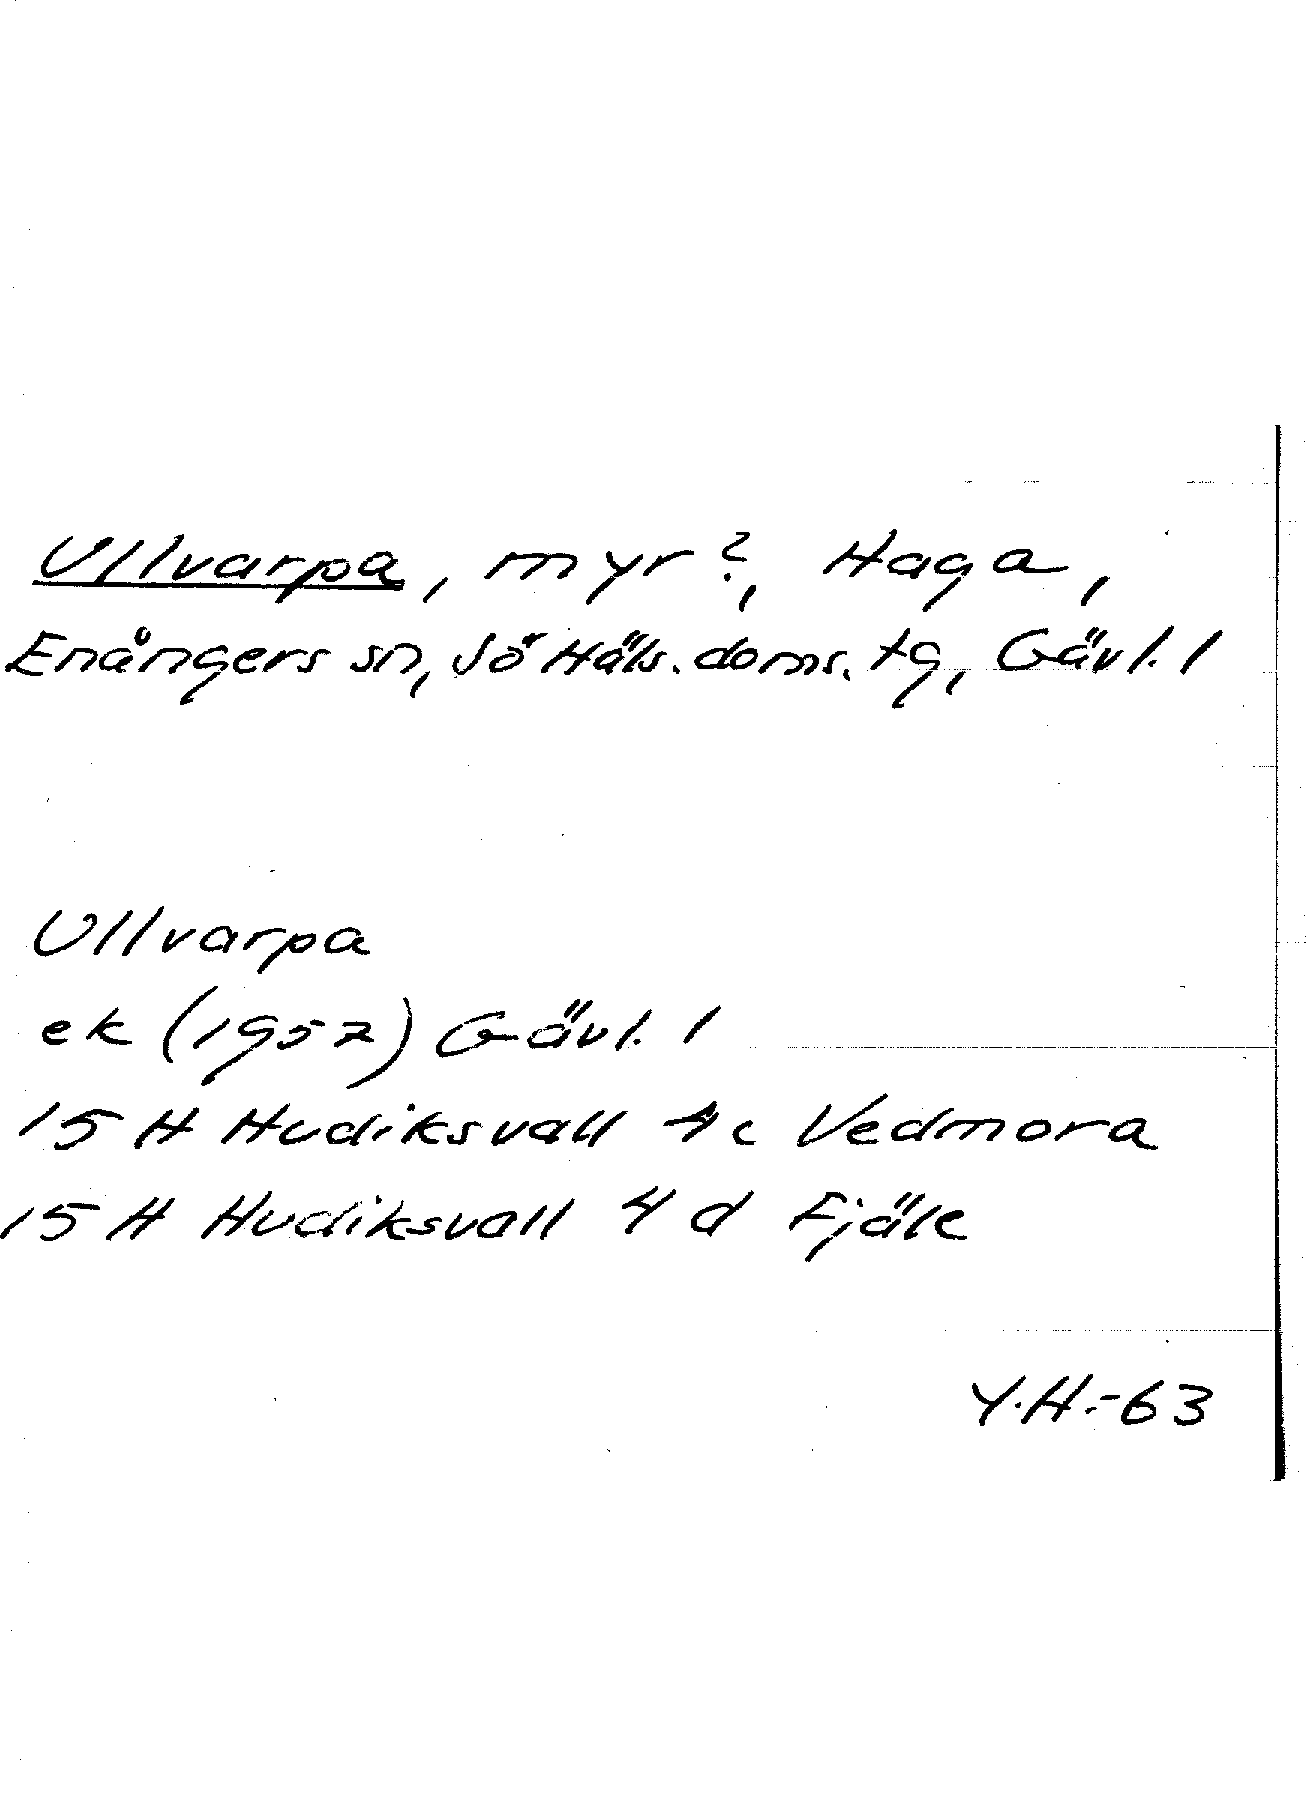 Ullvarpa, myr?, Haga,
Enångers sn, Sö Häls. doms. tg, Gävl. l
Ullvarpa
ek (1957) Gävl. l
15 H Hudiksvall 4c Vedmora
15 H Hudiksvall 4 d Fjäle
Y.H.-63